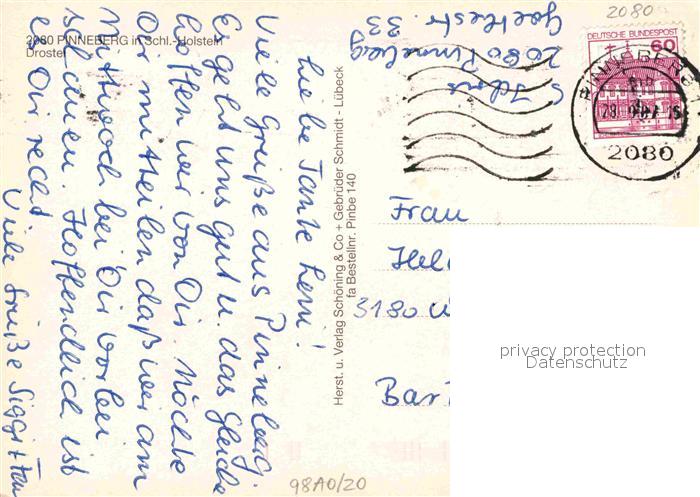 2080 PINNEBERG in Schl.-Holstein
Drostei
Liebe Tante Leni!
Viele Grüße aus Pinneberg.
Es geht uns gut u. das Gleiche
hoffen wir von Dir. Möchte
Dir mitteilen daß wir am
Mittwoch bei Dir vorbei
schauen. Hoffendlich ist
es Dir recht
Viele Grüße Siggi +
Herst. u. Verlag Schöning & Co + Gebrüder Schmidt - Lübeck
fa Bestellnr. Pinbe 140
2080 Pinneberg
Goethestr. 33
2080
DEUTSCHE BUNDESPOST
60
PINNEBERG
2080
Frau
Hel
3180 W
Bar
privacy protection
Datenschutz
98A0/20